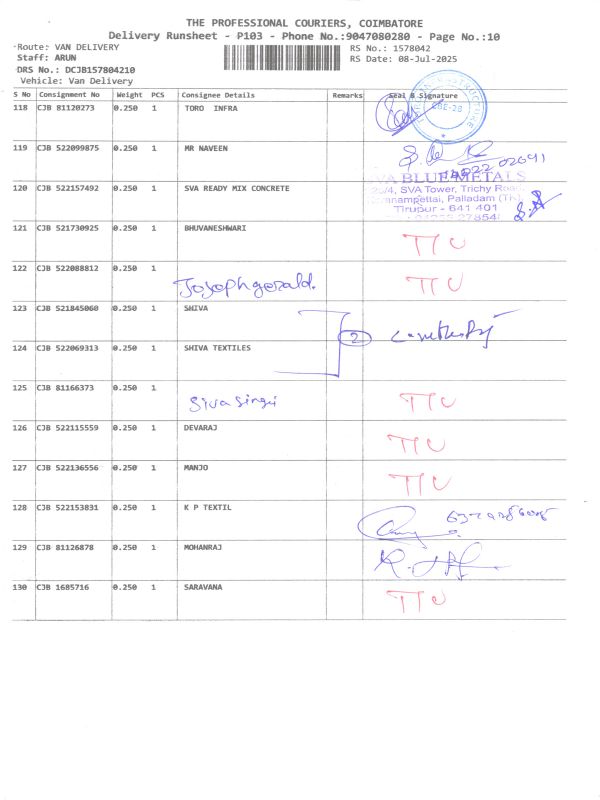 THE PROFESSIONAL COURIERS, COIMBATORE
Delivery Runsheet - P103 - Phone No.:9047080280 - Page No.:10
Route: VAN DELIVERY
RS No.: 1578042
Staff: ARUN
RS Date: 08-Jul-2025
DRS No.: DCJB157804210
Vehicle: Van Delivery
S No Consignment No Weight PCS Consignee Details Remarks Seal & Signature
118 CJB 81120273 0.250 1 TORO INFRA
119 CJB 522099875 0.250 1 MR NAVEEN
120 CJB 522157492 0.250 1 SVA READY MIX CONCRETE
SVA BLUE METALS
SVA Tower, Trichy Road,
Palladam (TK),
Tirupur - 641 401
121 CJB 521730925 0.250 1 BHUVANESHWARI TTC
122 CJB 522088812 0.250 1 Josephgerald. TTC
123 CJB 521845060 0.250 1 SHIVA
2
124 CJB 522069313 0.250 1 SHIVA TEXTILES
125 CJB 81166373 0.250 1 Sivasingh TTC
126 CJB 522115559 0.250 1 DEVARAJ TTC
127 CJB 522136556 0.250 1 MANJO TTC
128 CJB 522153831 0.250 1 K P TEXTIL
129 CJB 81126878 0.250 1 MOHANRAJ
130 CJB 1685716 0.250 1 SARAVANA TTC